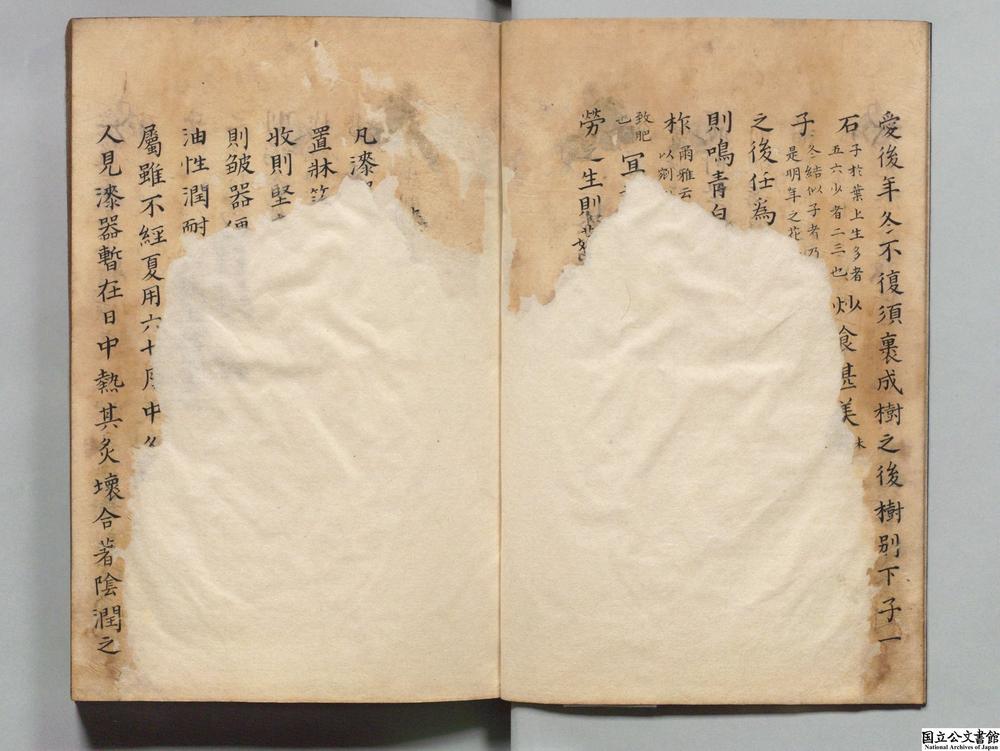 愛後年冬不復須裹成樹之後樹別下子一
石子於葉上生多者
五六少者二三也炒食甚美未
子冬結似子者乃
是明年之花
之後任為
則鳴青白
柞爾雅云
以劉
致肥
也冝
勞之生則
凡漆
置牀
收則堅
則皴器便
油性潤耐
屬雖不經夏用六七月中
人見漆器暫在日中熱其炙壞合著陰潤之
国立公文書館
National Archives of Japan